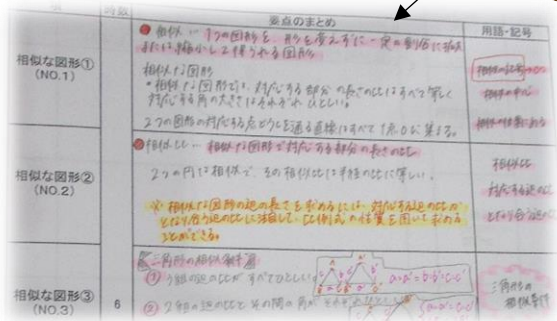 項 時数 要点のまとめ 用語・記号
相似な図形①
(NO.1)
相似… 1つの図形を、形を変えずに一定の割合に拡大
または縮小して得られる図形
相似な図形
・相似な図形では、対応する部分の長さの比はすべて等しく
対応する角の大きさはそれぞれひとしい。
2つの図形の対応する点どうしを通る直線はすべて1点Oに集まる。
相似の記号
相似の中心
相似の位置にある
相似な図形②
(NO.2)
相似比… 相似な図形で対応する部分の長さの比
2つの円は相似で、その相似比は半径の比に等しい。
※ 相似な図形の辺の長さを求めるには、対応する辺の比や
となり合う辺の比に注目して、比例式の性質を用いて求める
ことができる。
相似比
対応する辺の
となり合う辺の
相似な図形③
(NO.3)
6
三角形の相似条件
① 3組の辺の比がすべてひとしい
② 2組の辺の比とその間の角が
三角形の
相似条件